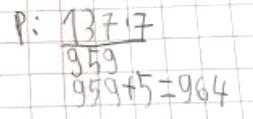 P: 137·7
959
959+5=964